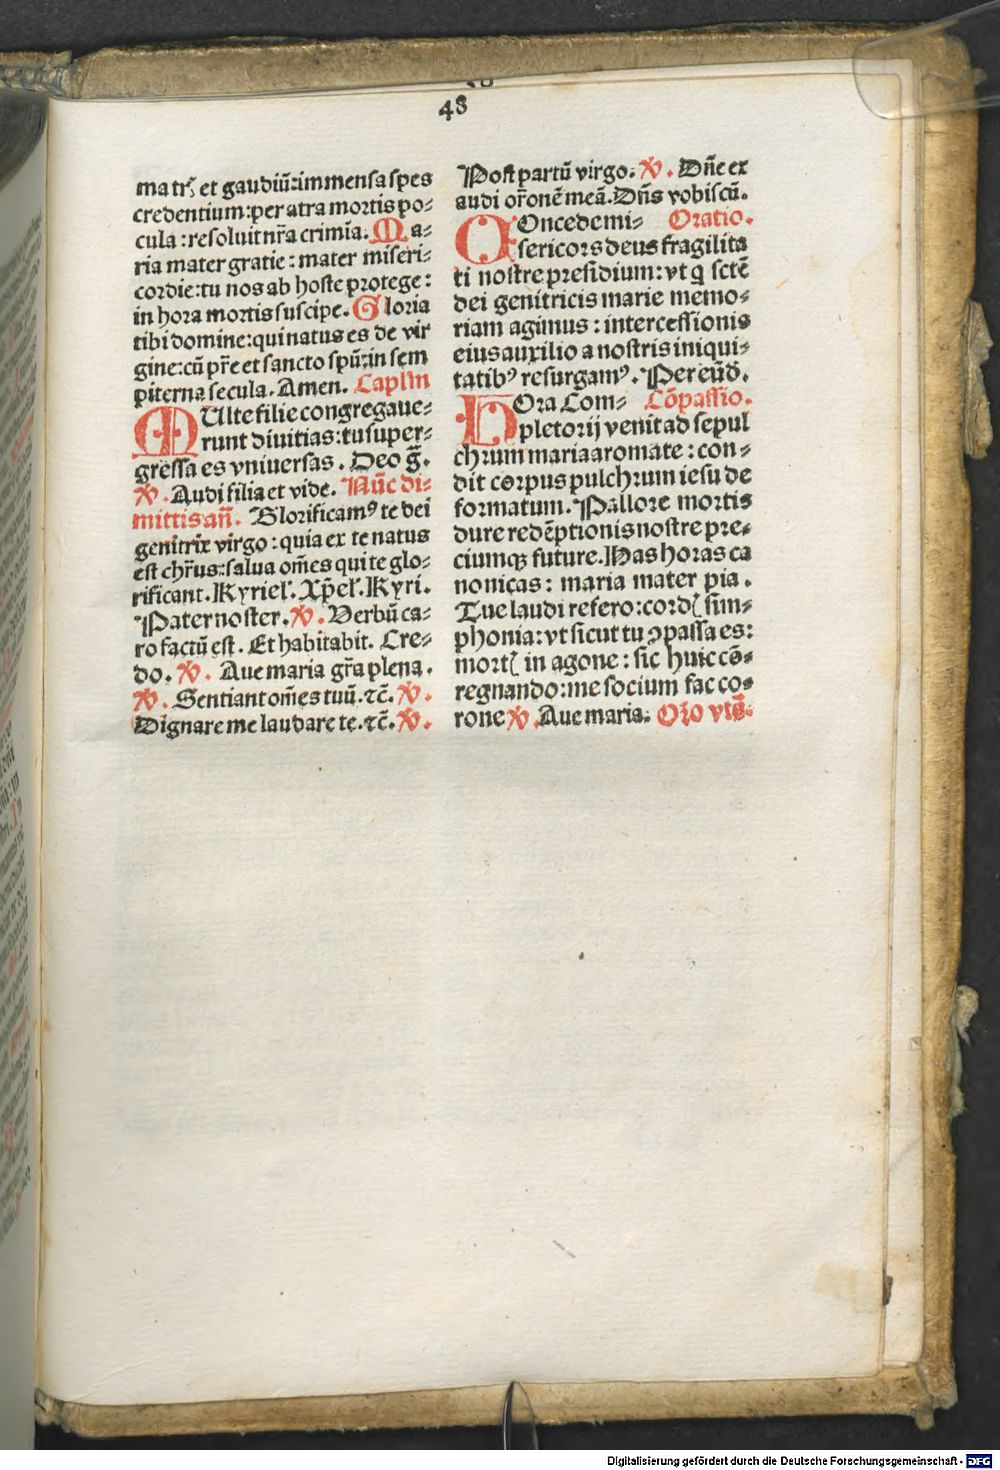 48
matrꝭ et gaudiū:immensa spes
credentium:per atra mortis po⸗
cula:resoluit nr̄a crimīa. Ma⸗
ria mater gratie: mater miseri⸗
cordie:tu nos ab hoste protege:
in hora mortis suscipe. Gloria
tibi domine:qui natus es de vir
gine:cū pr̄e et sancto spū:in sem
piterna secula. Amen. Caplm̄
MUlte filie congregaue⸗
runt diuitias:tu super⸗
gressa es vniuersas. Deo g̃.
℣. Audi filia et vide. Nūc di⸗
mittis añ. Glorificamꝰ te dei
genitrix virgo: quia ex te natus
est chr̄us:salua om̄es qui te glo⸗
rificant. Kyriel'. Xp̄el'. Kyri.
Pater noster. ℣. Verbū ca⸗
ro factū est. Et habitabit. Cre⸗
do. ℣. Aue maria gr̄a plena.
℣. Sentiant om̄es tuū. ⁊c̄. ℣.
Dignare me laudare te. ⁊c̄. ℣.
Post partū virgo. ℣. Dn̄e ex
audi or̄onē meā. Dn̄s vobiscū.
COncede mi⸗ Oratio.
sericors deus fragilita
ti nostre presidium: vt q̄ sctē
dei genitricis marie memo⸗
riam agimus: intercessionis
eius auxilio a nostris iniqui⸗
tatibꝰ resurgamꝰ. Per eūd̄.
HOra Com⸗ Cōpassio.
pletorij venit ad sepul
chrum maria aromate: con⸗
dit corpus pulchrum iesu de
formatum. Pallore mortis
dure redēptionis nostre pre⸗
ciumqꝫ future. Has horas ca
nonicas: maria mater pia.
Tue laudi refero: cordꝭ sim⸗
phonia: vt sicut tu ꝯpassa es:
mortꝭ in agone: sic huic cō⸗
regnando: me socium fac co⸗
rone ℣. Aue maria. Or̄o vts̄.
Digitalisierung gefördert durch die Deutsche Forschungsgemeinschaft - DFG